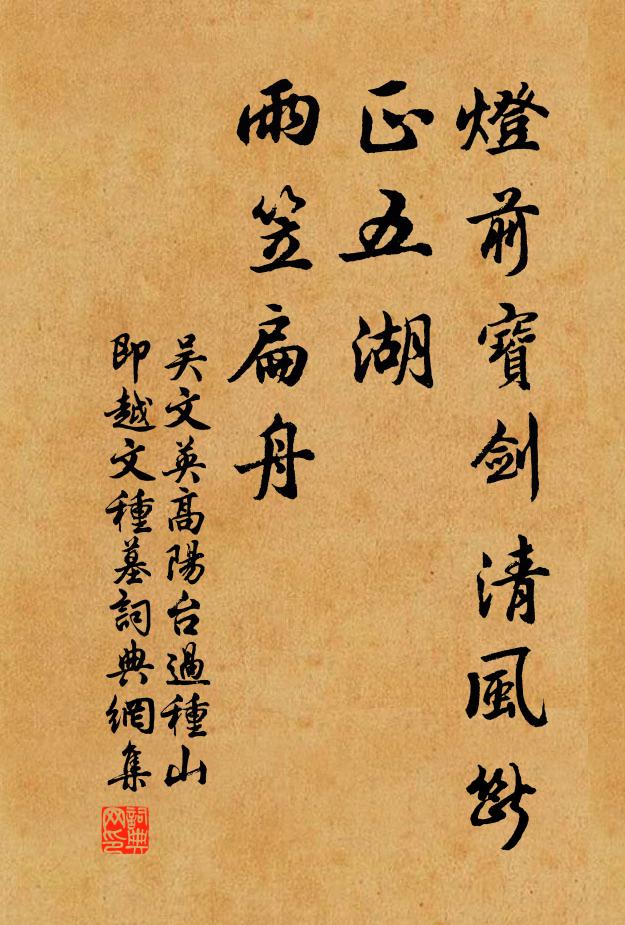 燈前寶劍清風斷
正五湖
雨笠扁舟
吴文英高陽台過種山
即越文種墓詞典網集
詞典
网印